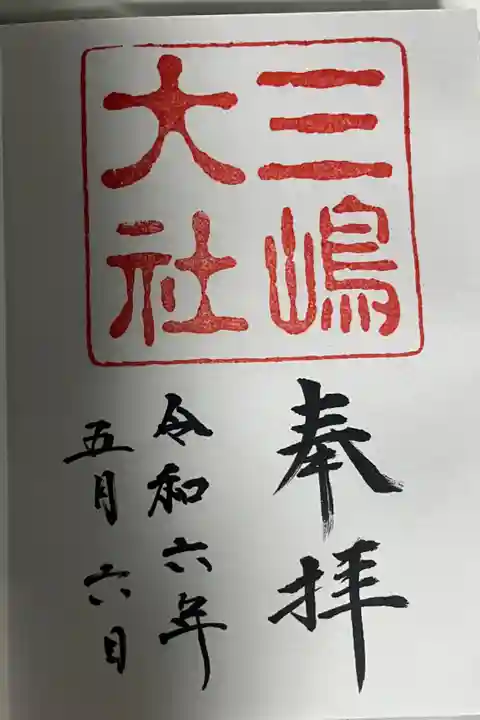 三嶋
大社
奉拝
令和六年
五月六日